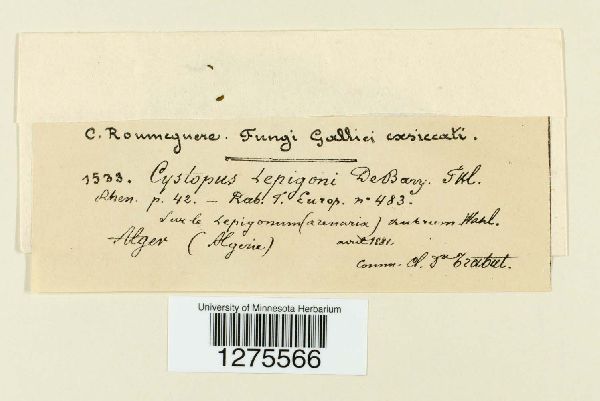 C. Roumeguere. Fungi Gallici exsiccati.
1533. Cystopus Lepigoni De Bary. Fkl.
Rhen. p. 42. — Rab. F. Europ. nº 483.
Sur le Lepigonum (arenaria) rubrum Wahl.
Alger (Algerie.) avril 1881.
Comm. Cl. Dr Trabut.
University of Minnesota Herbarium
1275566